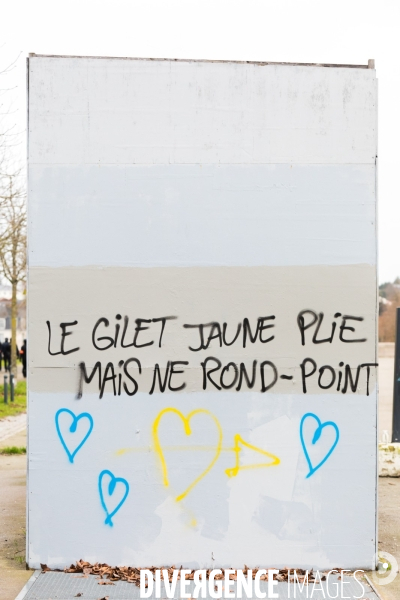 LE GILET JAUNE PLIE
MAIS NE ROND-POINT
DIVERGENCE IMAGES